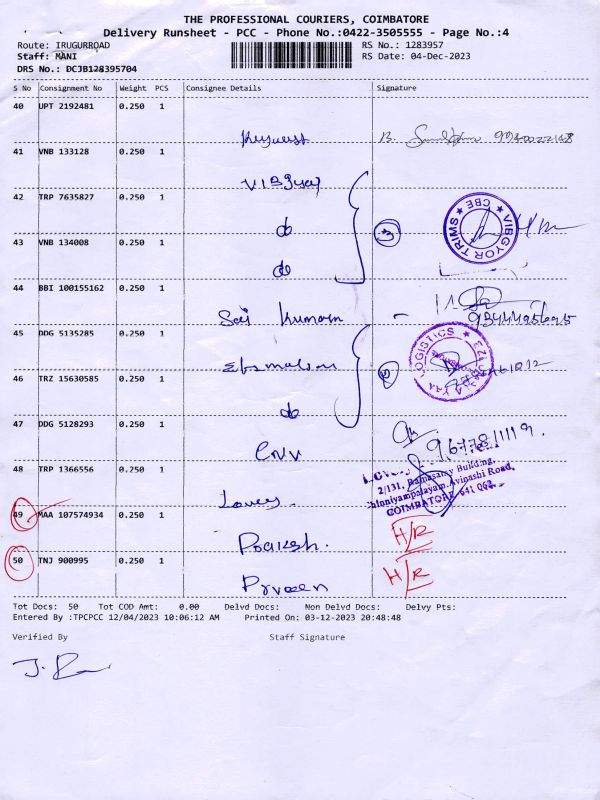 THE PROFESSIONAL COURIERS, COIMBATORE
Delivery Runsheet - PCC - Phone No.:0422-3505555 - Page No.:4
Route: IRUGURROAD RS No.: 1283957
Staff: MANI RS Date: 04-Dec-2023
DRS No.: DCJB128395704
S No Consignment No Weight PCS Consignee Details Signature
40 UPT 2192481 0.250 1
41 VNB 133128 0.250 1
42 TRP 7635827 0.250 1
do
VIBGYOR TRIMS ★ CBE ★
43 VNB 134008 0.250 1
do
44 BBI 100155162 0.250 1
Sai Kumaran
45 DDG 5135285 0.250 1
LOGISTICS
46 TRZ 15630585 0.250 1
do
47 DDG 5128293 0.250 1
CNV
48 TRP 1366556 0.250 1
2/131, Ramasamy Building,
Chinniyampalayam, Avinashi Road,
COIMBATORE-641 062.
49 MAA 107574934 0.250 1
Prakash. H/R
50 TNJ 900995 0.250 1
Praveen H/R
Tot Docs: 50 Tot COD Amt: 0.00 Delvd Docs: Non Delvd Docs: Delvy Pts:
Entered By :TPCPCC 12/04/2023 10:06:12 AM Printed On: 03-12-2023 20:48:48
Verified By Staff Signature